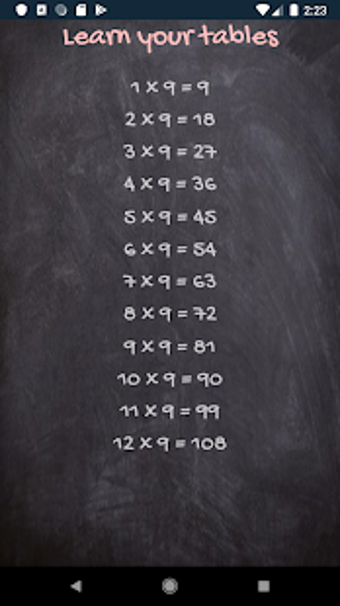 2:23
Learn your tables
1 x 9 = 9
2 x 9 = 18
3 x 9 = 27
4 x 9 = 36
5 x 9 = 45
6 x 9 = 54
7 x 9 = 63
8 x 9 = 72
9 x 9 = 81
10 x 9 = 90
11 x 9 = 99
12 x 9 = 108